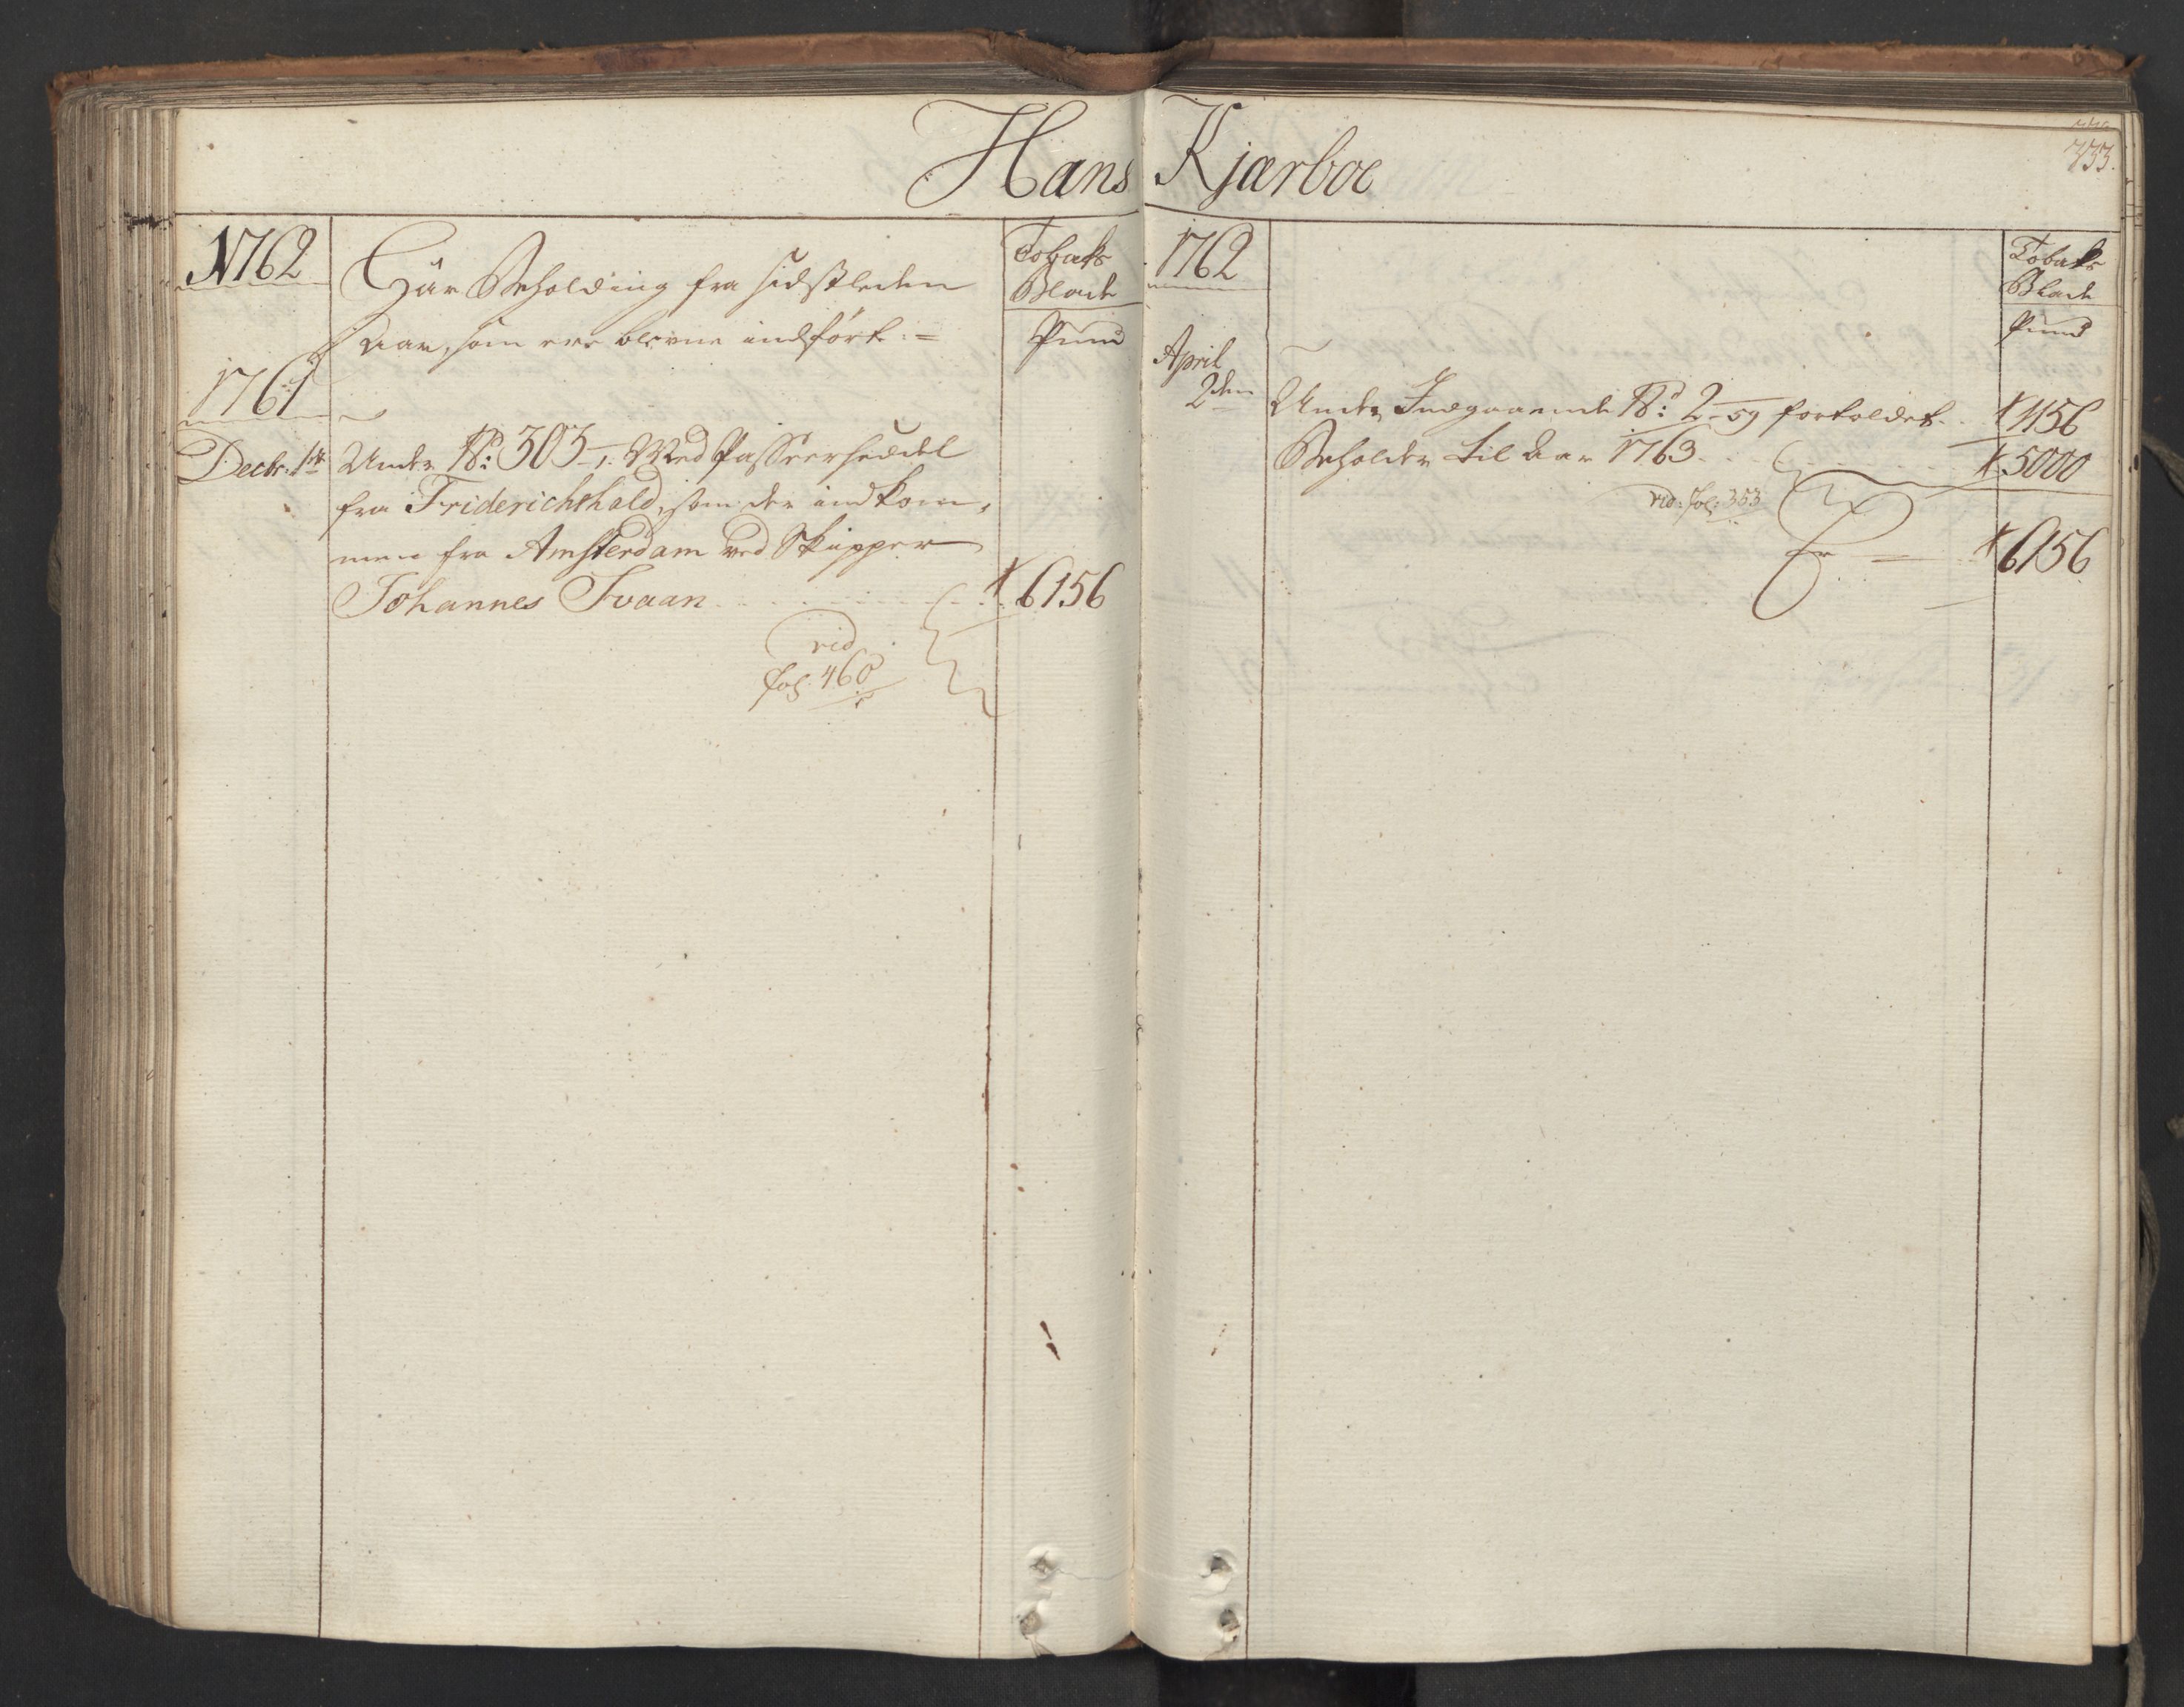 Hans Kjærboe
733.
1762
Har Beholding fra sidstleden
Aar, som ere blevne indført :=
Tobaks
Blade
Pund
1761
Decbr: 1ste Under No: 303-1. Med Passeerseddel
fra Friderichshald, som der indkom,
men fra Amsterdam ved Skipper
Johannes Svaan 6156
vid
fol: 460
1762
Tobaks
Blade
Pund
April
2den Under Indgaaende No: 2-59 fortoldet 1156
Beholder til Aar 1763 5000
vid: fol: 353
Er = 6156